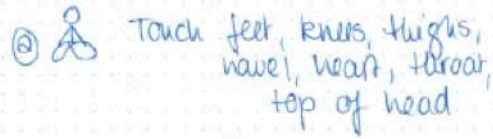 ② Touch feet, knees, thighs,
navel, heart, throat,
top of head